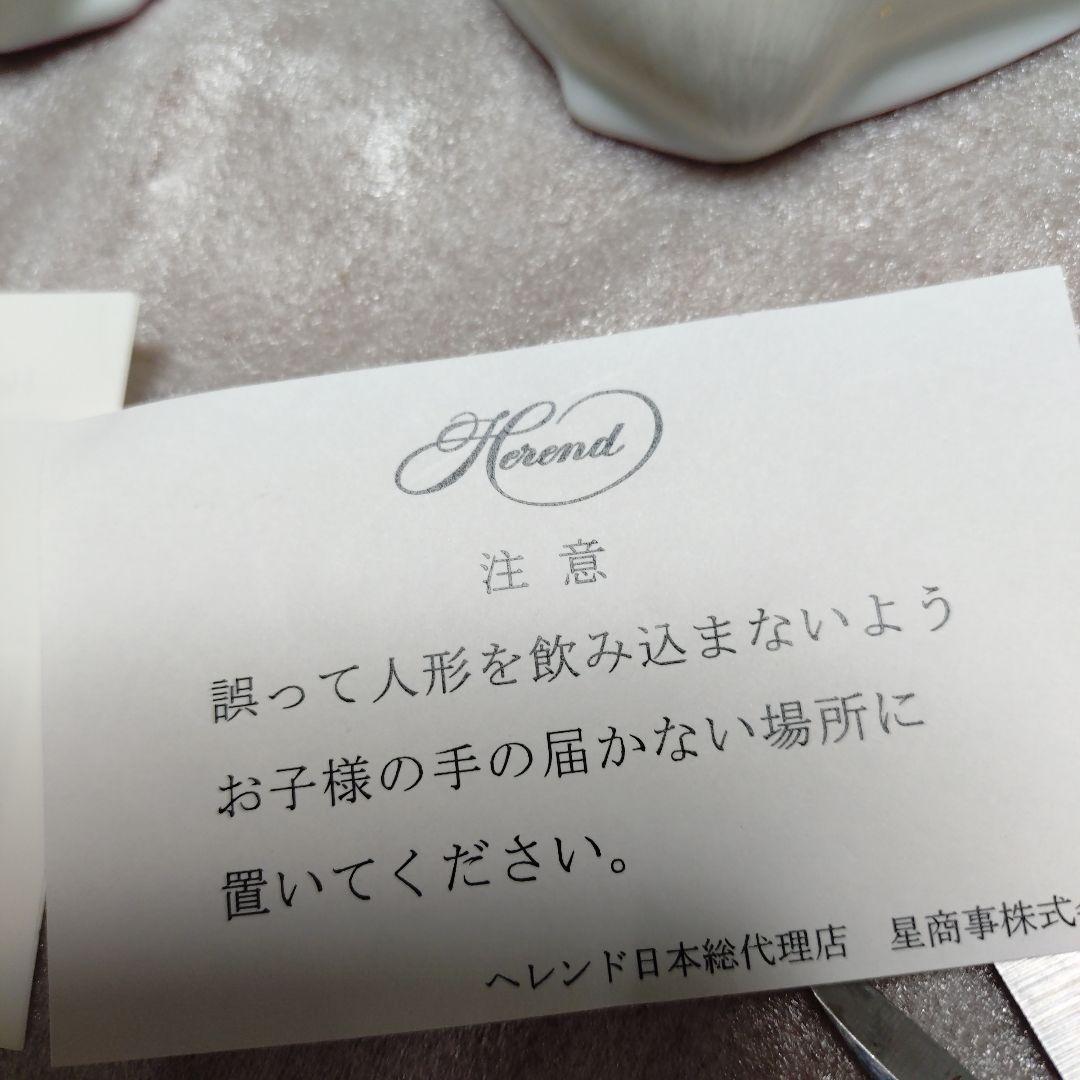 Herend
注 意
誤って人形を飲み込まないよう
お子様の手の届かない場所に
置いてください。
ヘレンド日本総代理店 星商事株式